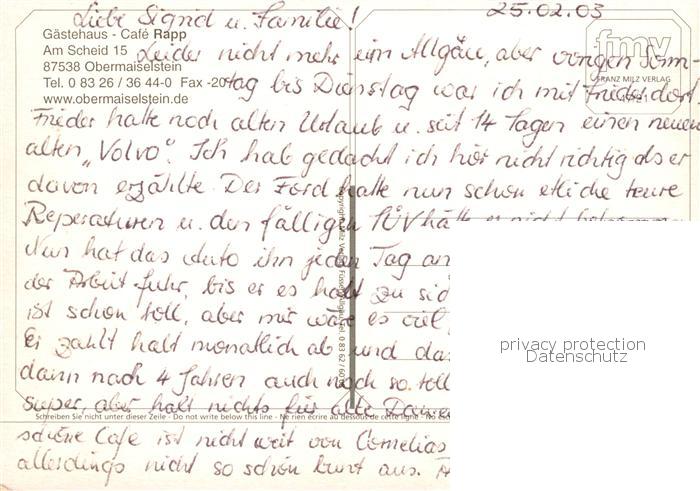 Liebe Sigrid u. Familie! 25.02.03
Gästehaus - Café Rapp
Am Scheid 15
87538 Obermaiselstein
Tel. 0 83 26 / 36 44-0 Fax -20
www.obermaiselstein.de
fmv
FRANZ MILZ VERLAG
Leider nicht mehr im Allgäu, aber vorigen Sonn-
tag bis Dienstag war ich mit Frieder dort
Frieder hatte noch alten Urlaub u. seit 14 Tagen einen neuen
alten „Volvo". Ich hab gedacht ich hör nicht richtig als er
davon erzählte. Der Ford hatte nun schon etliche teure
Reperaturen u. den fälligen TÜV hätte er nicht bekommen
Nun hat das Auto ihn jeden Tag an
der Arbeit fuhr, bis er es halt zu
ist schon toll, aber mir wäre es viel
Er zahlt halt monatlich ab und das
dann nach 4 Jahren auch noch so toll
super, aber halt nichts für alte Damen
Schreiben Sie nicht unter dieser Zeile - Do not write below this line - Ne rien écrire au dessous de cette ligne
schöne Cafe ist nicht weit von Cornelias
allerdings nicht so schön bunt aus.
privacy protection
Datenschutz